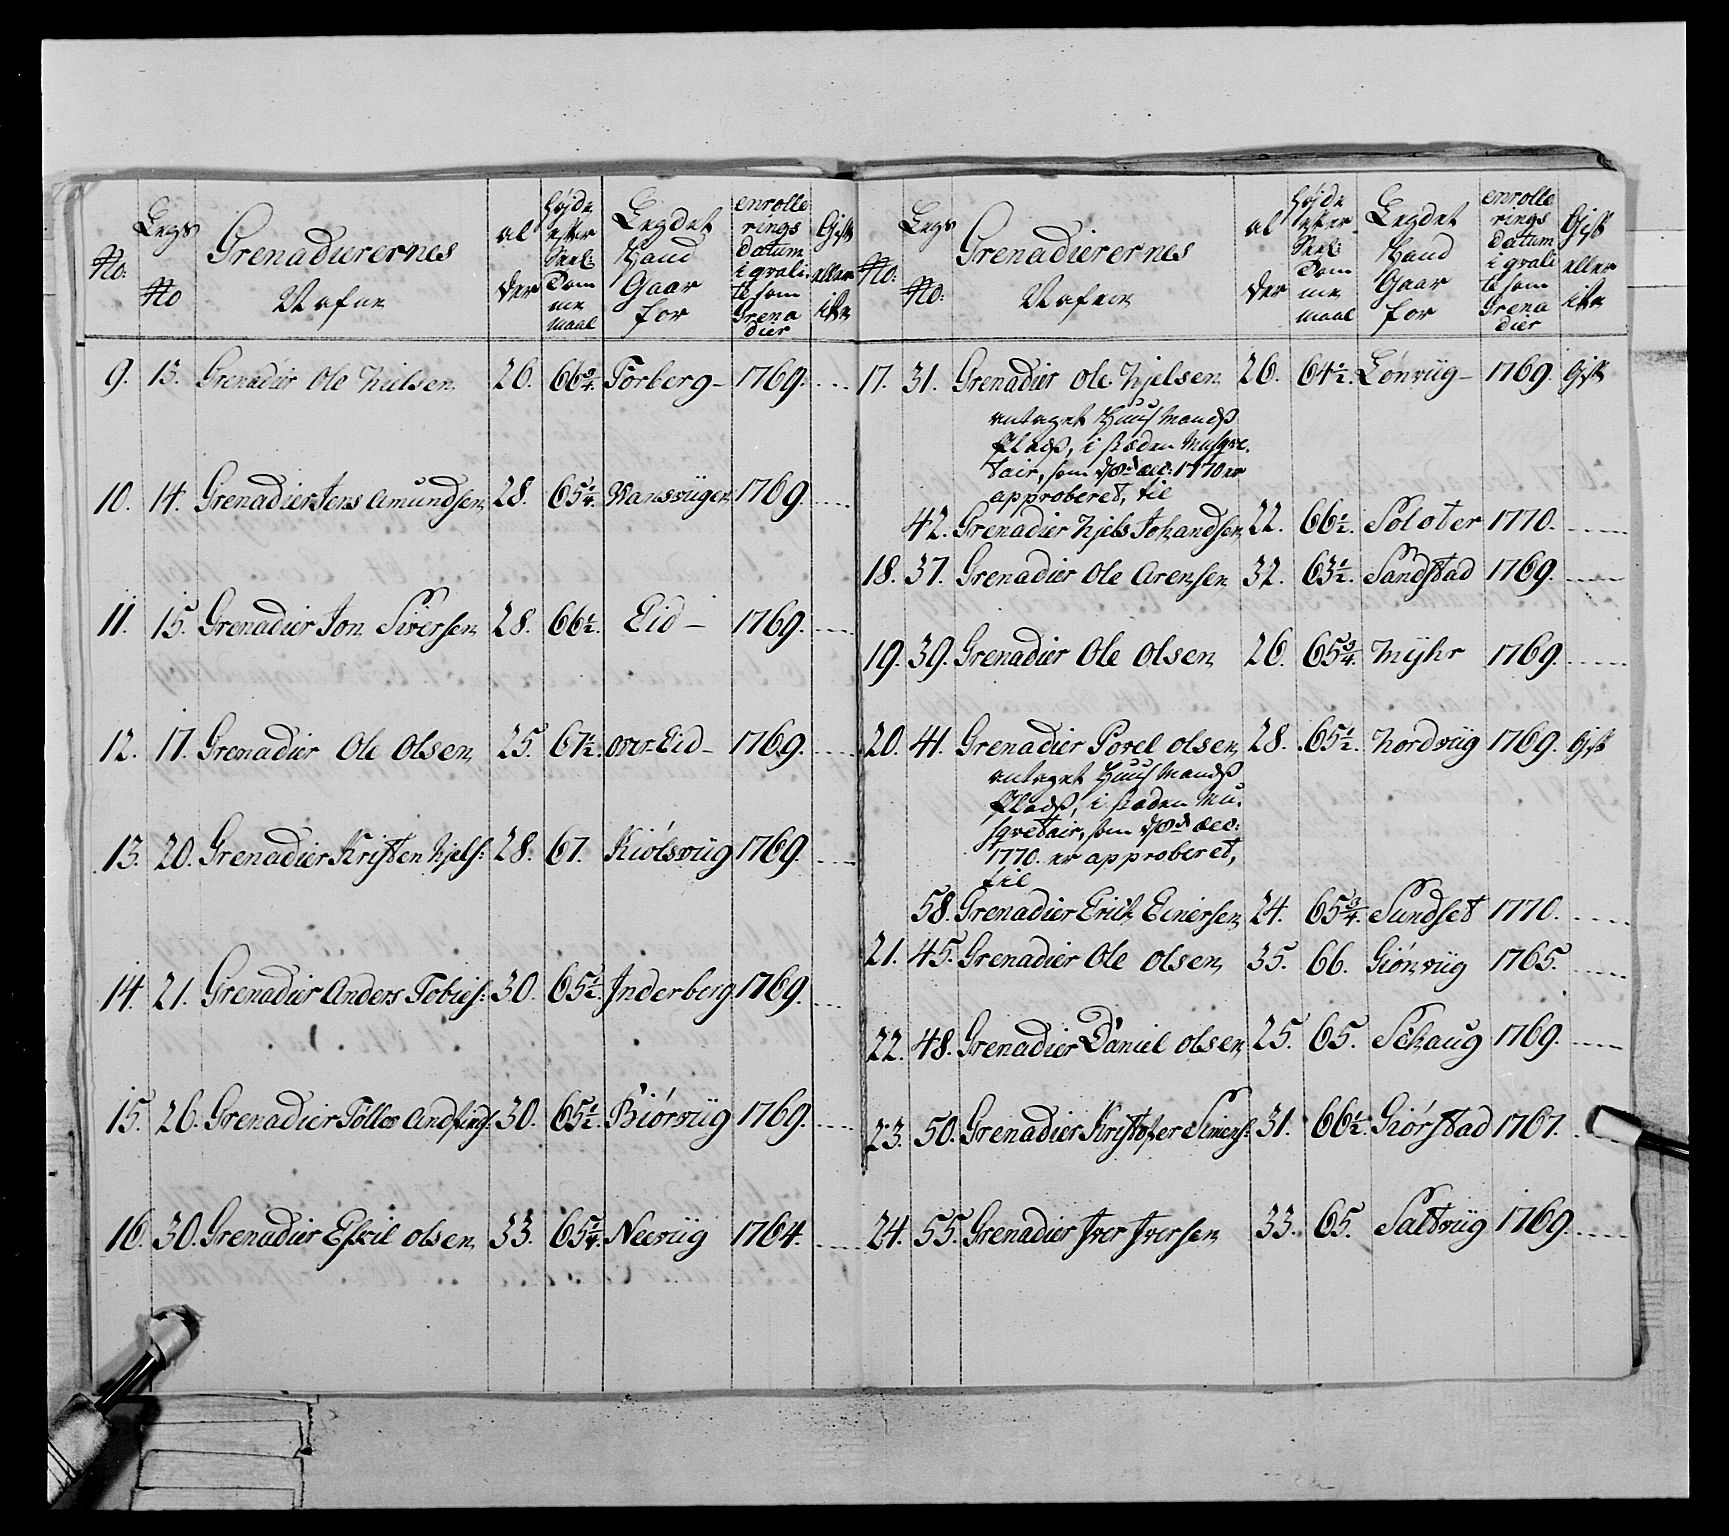 No:
Legs No
Grenadierernes Nafne
al der
Højde efter Seel: Dom me maal
Legdet Hand Gaar for
enrolle rings datum i qvali te som Grena dier
Gift eller ikke
9. 13. Grenadier Ole Nielsen 26. 66 3/4. Forberg - 1769. ....
10. 14. Grenadier Jens Amundsen 28. 65 1/4. Hansviigen 1769. ....
11. 15. Grenadier Jon Siversen 28. 66 1/2. Eid - 1769. ....
12. 17. Grenadier Ole Olsen 25. 67 1/2. over Eid - 1769. ....
13. 20. Grenadier Kristen Njels: 28. 67. Kiølsviig 1769. ....
14. 21. Grenadier Anders Tobies: 30. 65 1/2. Inderberg 1769. ....
15. 26. Grenadier Tølløv 30. 65 1/2. Biørviig 1769. ....
16. 30. Grenadier Eskil Olsen 33. 65 1/4. Neeviig 1764. ....
No:
Legs No:
Grenadierernes Nafne
al der
Højde efter Seel: Dom me maal
Legdet Hand Gaar for
enrolle rings datum i qvali te som Grena dier
Gift eller ikke
17. 31. Grenadier Ole Njelsen 26. 64 1/2. Lønviig - 1769. Gift
antaget Huus Mands
Plads, i stæden Musqve-
tair, som dec: 1770 er
approberet, til
42. Grenadier Njels Johandsen 22. 66 1/2. Soloter 1770. ....
18. 37. Grenadier Ole Arensen 32. 63 1/2. Sandstad 1769. ....
19. 39. Grenadier Ole Olsen 26. 65 3/4. Myhr 1769. ....
20. 41. Grenadier Povel Olsen 28. 65 1/2. Nordviig 1769. Gift
antaget Huus Mands
Plads, i stæden Mu-
sqvetair, som dec:
1770. er approberet,
til
58. Grenadier Erich Einersen 24. 65 3/4. Sundset 1770. ....
21. 45. Grenadier Ole Olsen 35. 66. Giønviig 1765. ....
22. 48. Grenadier Daniel Olsen 25. 65. Schaug 1769. ....
23. 50. Grenadier Kristofer Simens: 31. 66 1/2. Giørstad 1767. .
24. 55. Grenadier Iver Iversen 33. 65. Saltviig 1769. ....